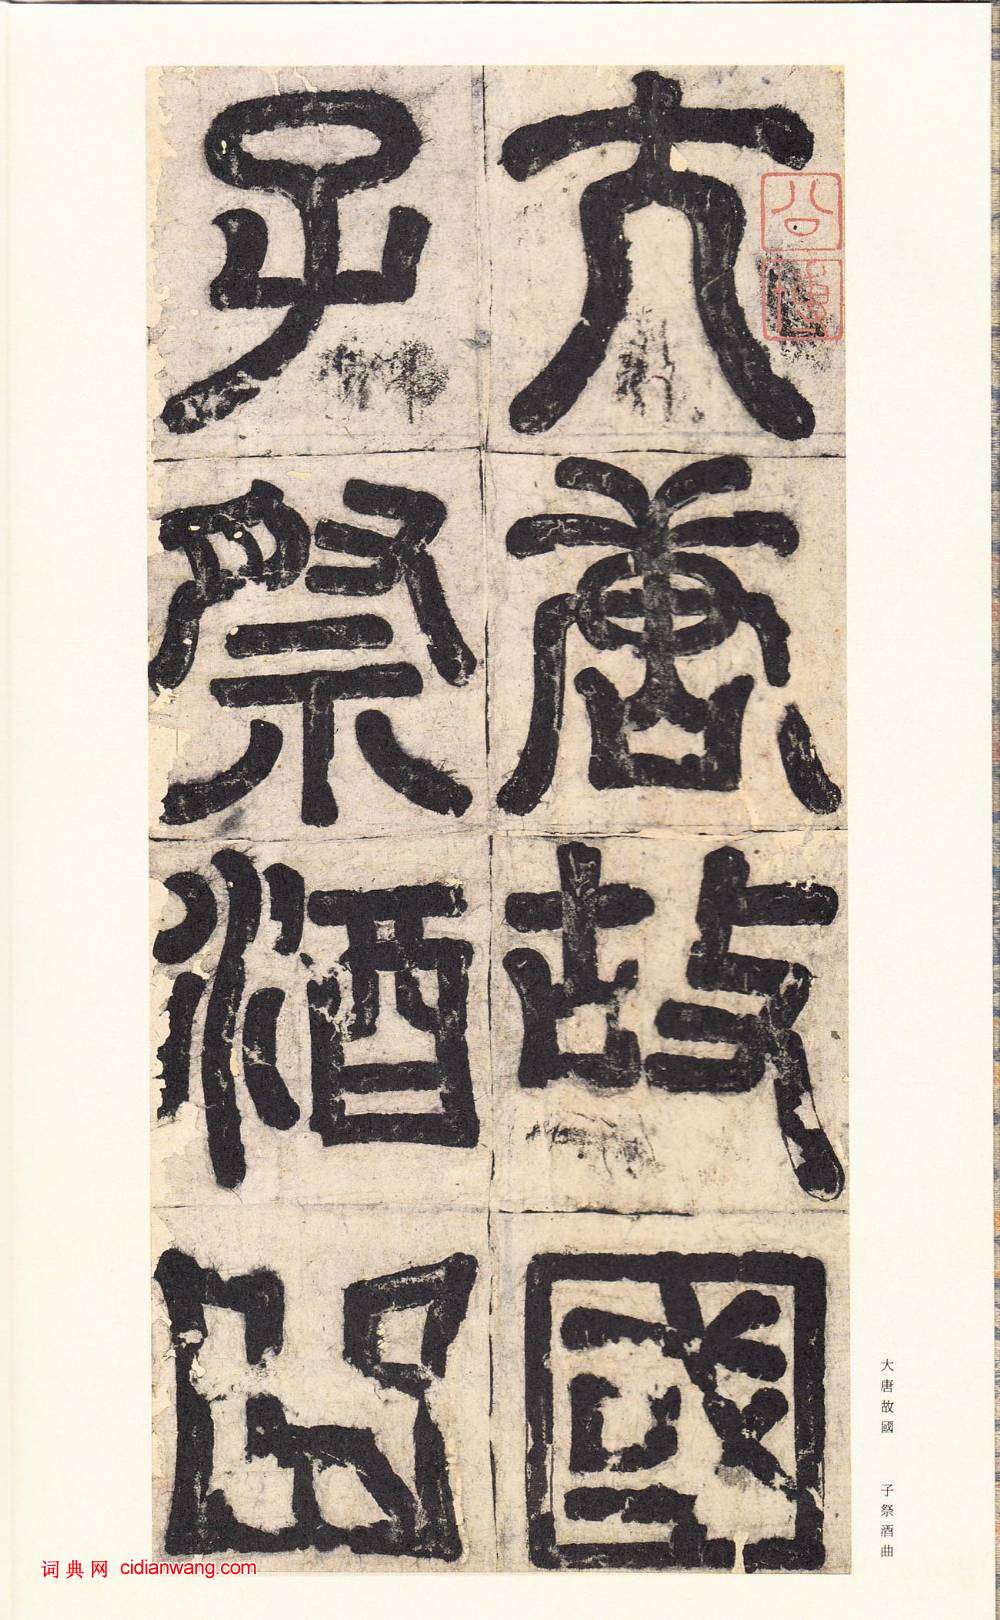 大唐故國
子祭酒曲
大唐故國 子祭酒曲
词典网 cidianwang.com